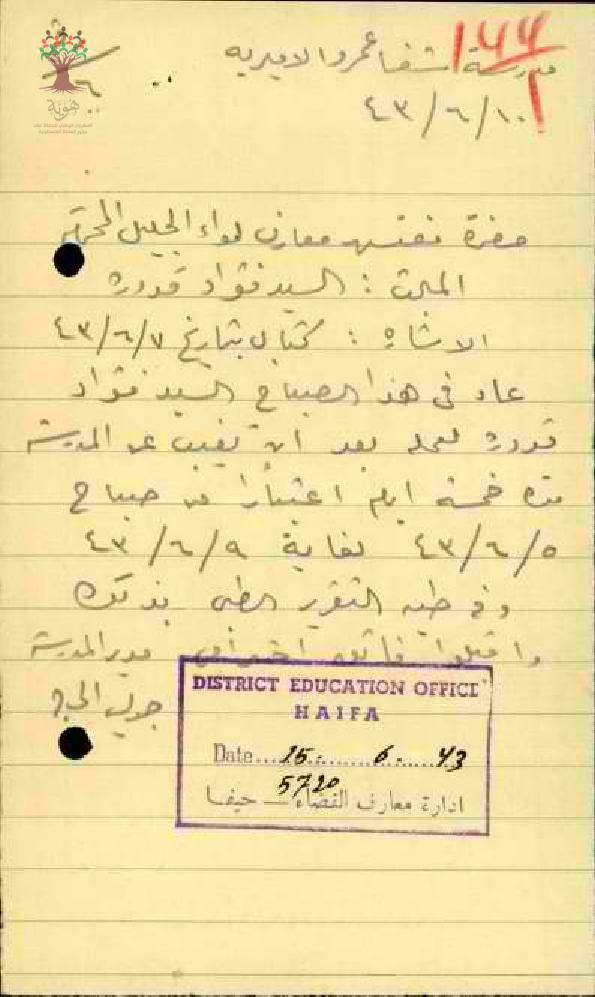 ١٧٧
مدرسة شفا عمرو الاميريه
٤٣/٦/١٠
هوية
حضرة مفتش معارف لواء الجليل المحترم
السيد فؤاد قدوره
الاشارة : كتابي بتاريخ ٤٣/٦/٧
عاد في هذا الصباح السيد فؤاد
قدوره لعمله بعد ان تغيب عن المدرسة
مدة خمسة ايام اعتبارا من صباح
٤٣/٦/٥ لغاية ٤٣/٦/٩
وفي طيه التقرير الطبي بذلك
واقبلوا فائق احترامي مدير المدرسة
DISTRICT EDUCATION OFFICE
HAIFA
Date 15. 6. 43
5720
ادارة معارف القضاء - حيفا